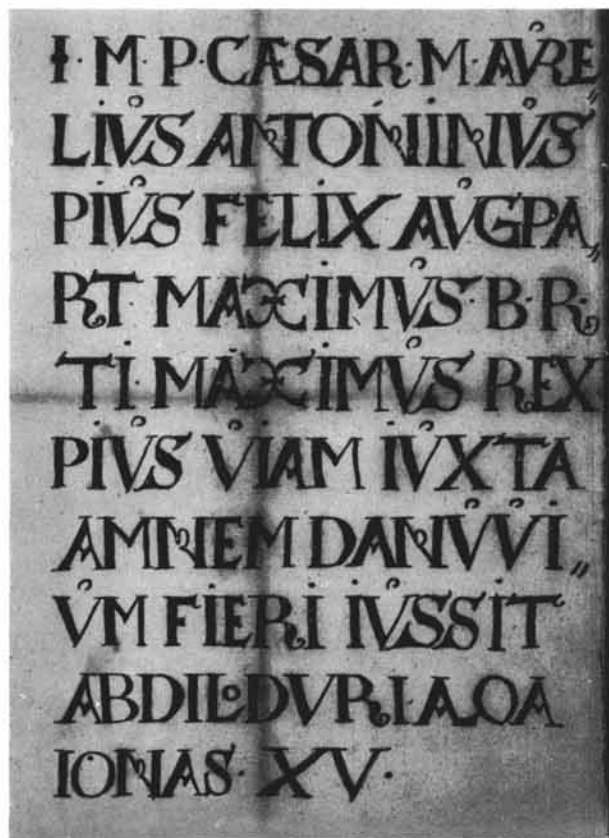 I·M·P·CÆSAR·M·AVRE„
LIVS ANTONIINIVS
PIVS FELIX AVGPA„
RT·MAXIMVS·B·R·
TI·MAXIMVS REX
PIVS VIAM IVXTA
AMNEM DANVVI„
VM FIERI IVSSIT
ABDILoDVRIAOA
IONAS·XV·